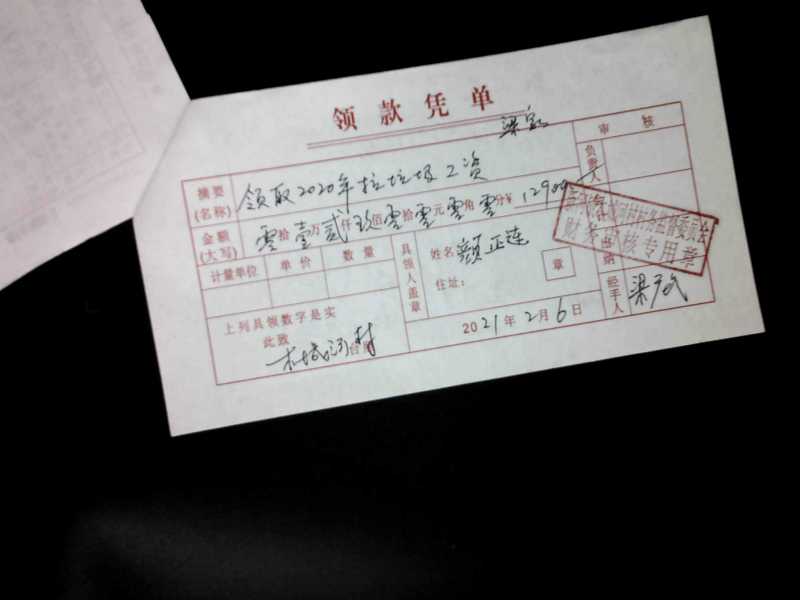 领款凭单
审核
负责人
摘要(名称) 领取2020年拉垃圾工资
金额(大写) 零拾壹万贰仟玖佰零拾零元零角零分¥ 12900
财务审核专用章
计量单位 单价 数量
具领人盖章
姓名 颜正连
住址: 章
出纳
经手人
上列具领数字是实
此致
木城河村
2021年2月6日